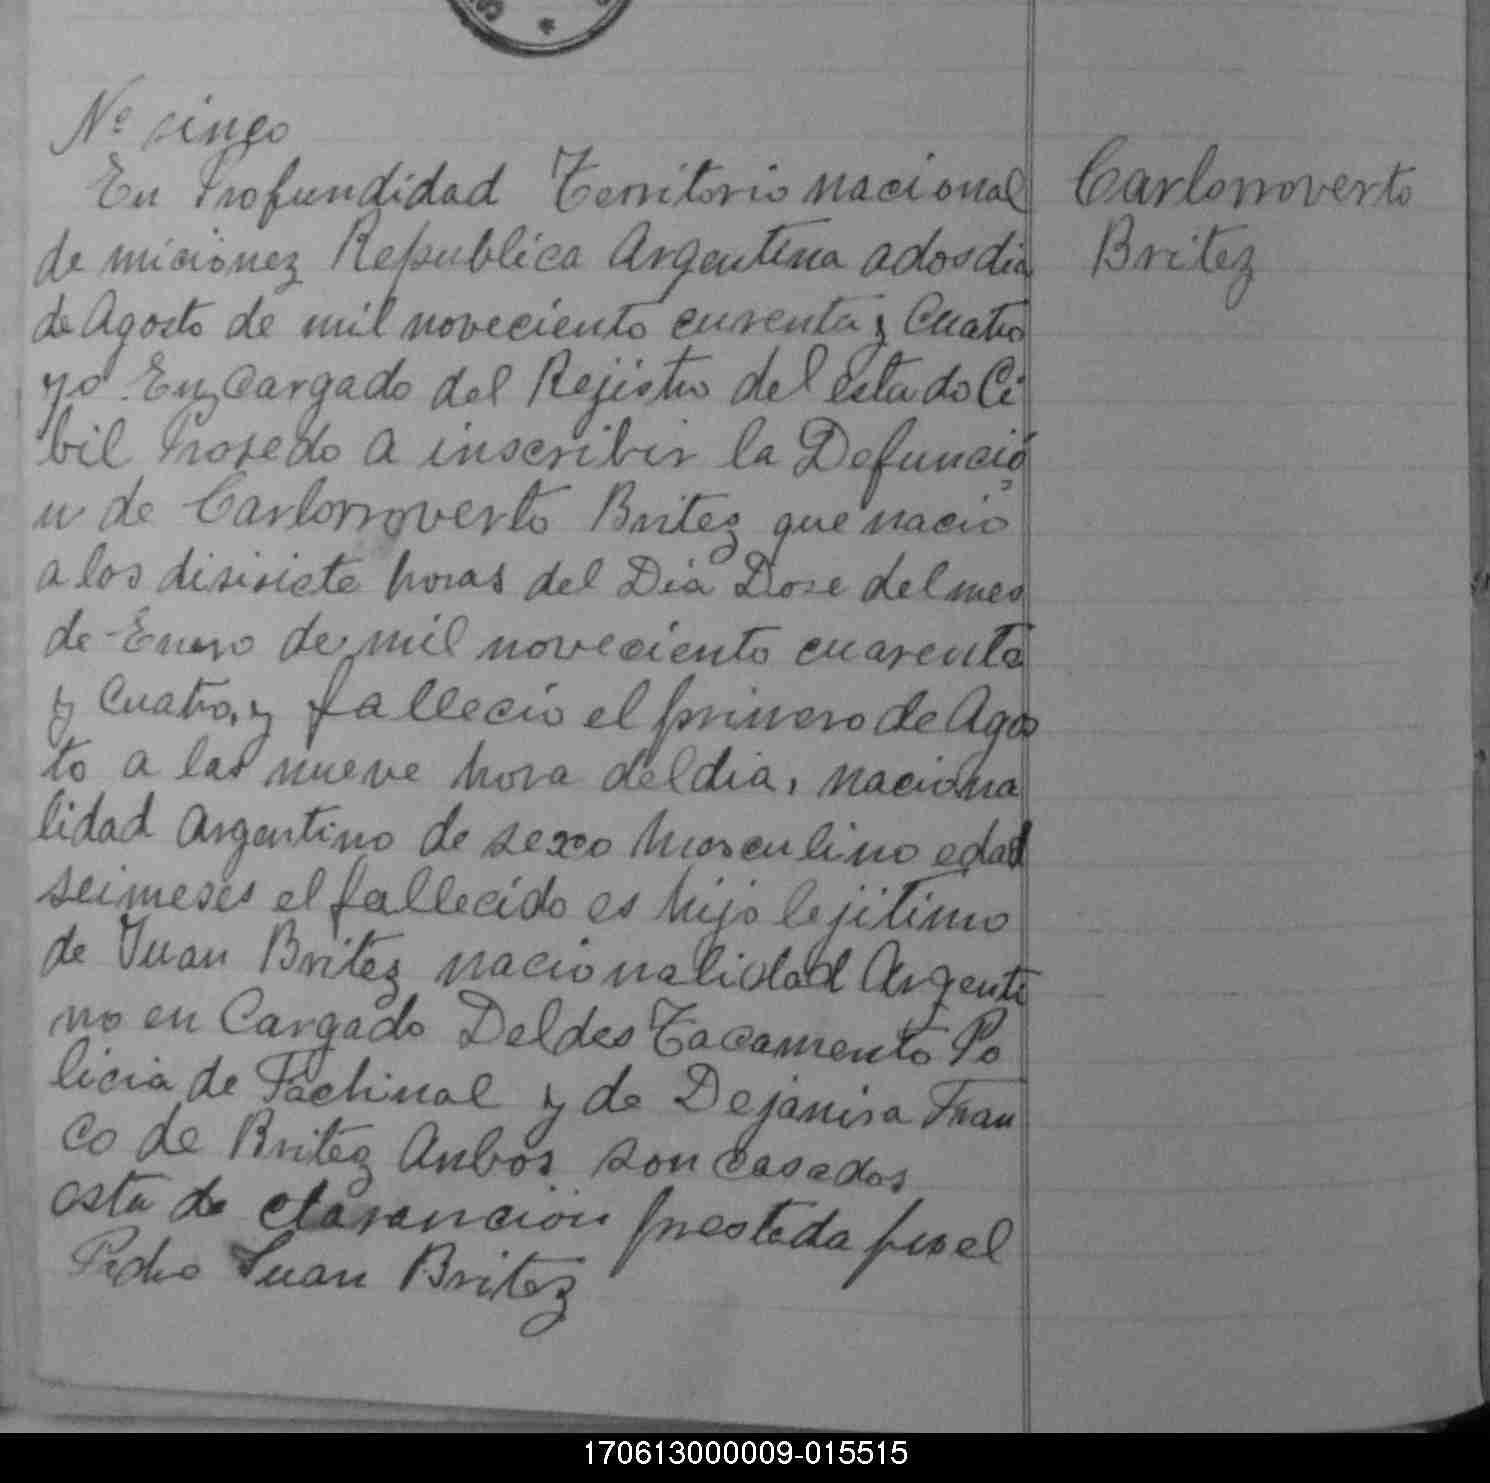 Nº singo
En Profundidad Territorio nacional
de micionez Republica Argentina a dos dia
de Agosto de mil noveciento curenta y Cuatro
yo Encargado del Rejistro del estado Ci
bil Prosedo a inscribir la Defunció
n de Carlorroverto Britez que nacio
a los disisiete horas del Dia Dose del mes
de Enero de mil noveciento cuarenta
y Cuatro, y fallecio el primero de Agos
to a las nueve hora del dia, naciona
lidad Argentino de sexo Masculino edad
seimeses el fallecido es hijo lejitimo
de Juan Britez nacionalidad Argenti
no en Cargado Del des Tacamento Po
licia de Fachinal y de Dejanira Fran
co de Britez Anbos son casados
esta de claración prestada por el
Pedro Juan Britez
Carlorroverto
Britez
170613000009-015515